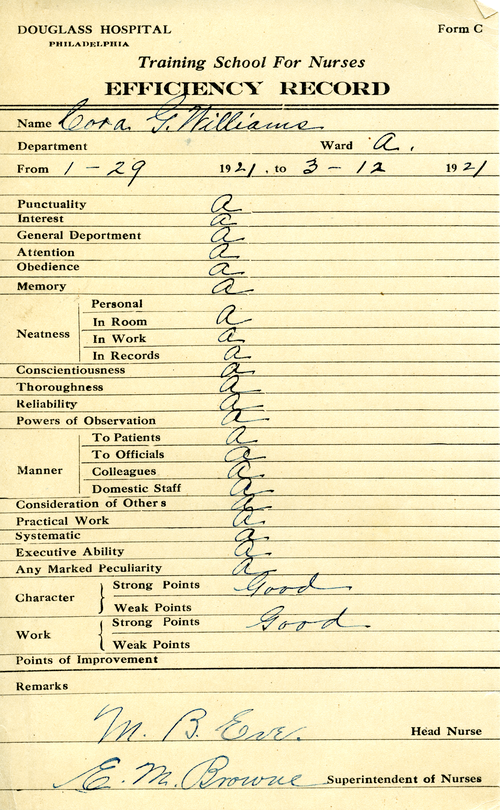 DOUGLASS HOSPITAL Form C
PHILADELPHIA
Training School For Nurses
EFFICIENCY RECORD
Name Cora G. Williams
Department Ward A.
From 1 - 29 1921, to 3 - 12 1921
Punctuality a
Interest a
General Department a
Attention a
Obedience a
Memory a
Neatness
Personal
In Room a
In Work a
In Records a
Conscientiousness a
Thoroughness a
Reliability a
Powers of Observation a
Manner
To Patients a
To Officials a
Colleagues a
Domestic Staff a
Consideration of Others a
Practical Work a
Systematic a
Executive Ability a
Any Marked Peculiarity a
Character
Strong Points Good
Weak Points
Work
Strong Points Good
Weak Points
Points of Improvement
Remarks
M. B. Eve. Head Nurse
E. M. Browne Superintendent of Nurses